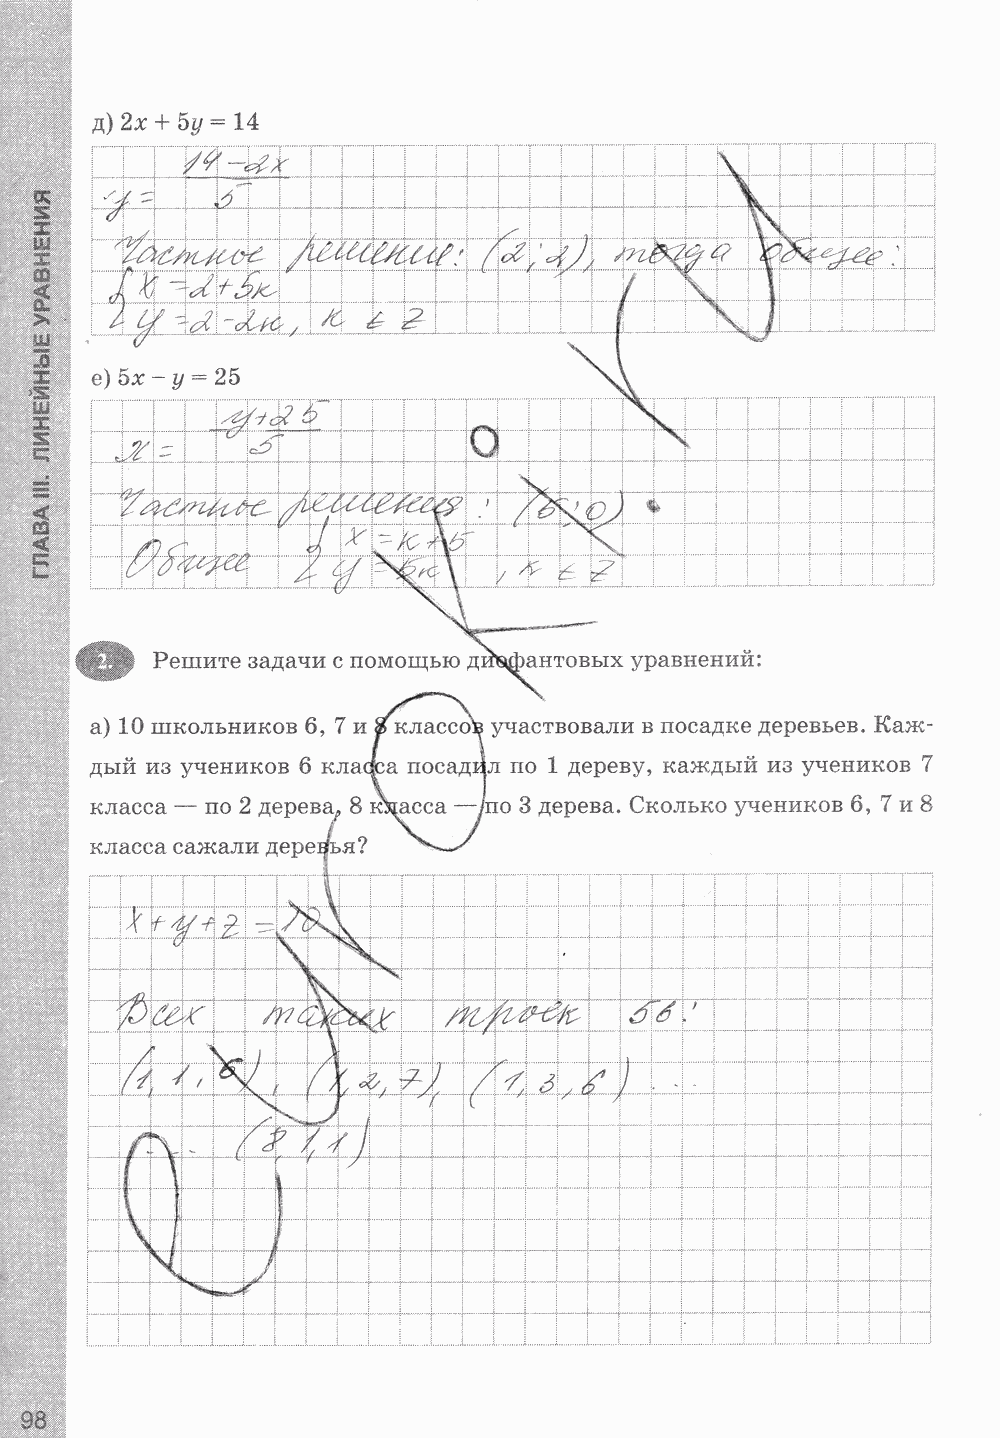 ГЛАВА III. ЛИНЕЙНЫЕ УРАВНЕНИЯ
д) 2x + 5y = 14
y = (14 – 2x)/5
Частное решение: (2; 2), тогда общее:
{ x = 2 + 5к
{ y = 2 – 2к, к ∈ Z
е) 5x – y = 25
x = (y + 25)/5
Частное решения: (5; 0)
Общее { x = к + 5
{ y = 5к , к ∈ Z
2. Решите задачи с помощью диофантовых уравнений:
а) 10 школьников 6, 7 и 8 классов участвовали в посадке деревьев. Каж-
дый из учеников 6 класса посадил по 1 дереву, каждый из учеников 7
класса — по 2 дерева, 8 класса — по 3 дерева. Сколько учеников 6, 7 и 8
класса сажали деревья?
x + y + z = 10
Всех таких троек 56:
(1, 1, 6), (1, 2, 7), (1, 3, 6) ...
.... (8, 1, 1)
98